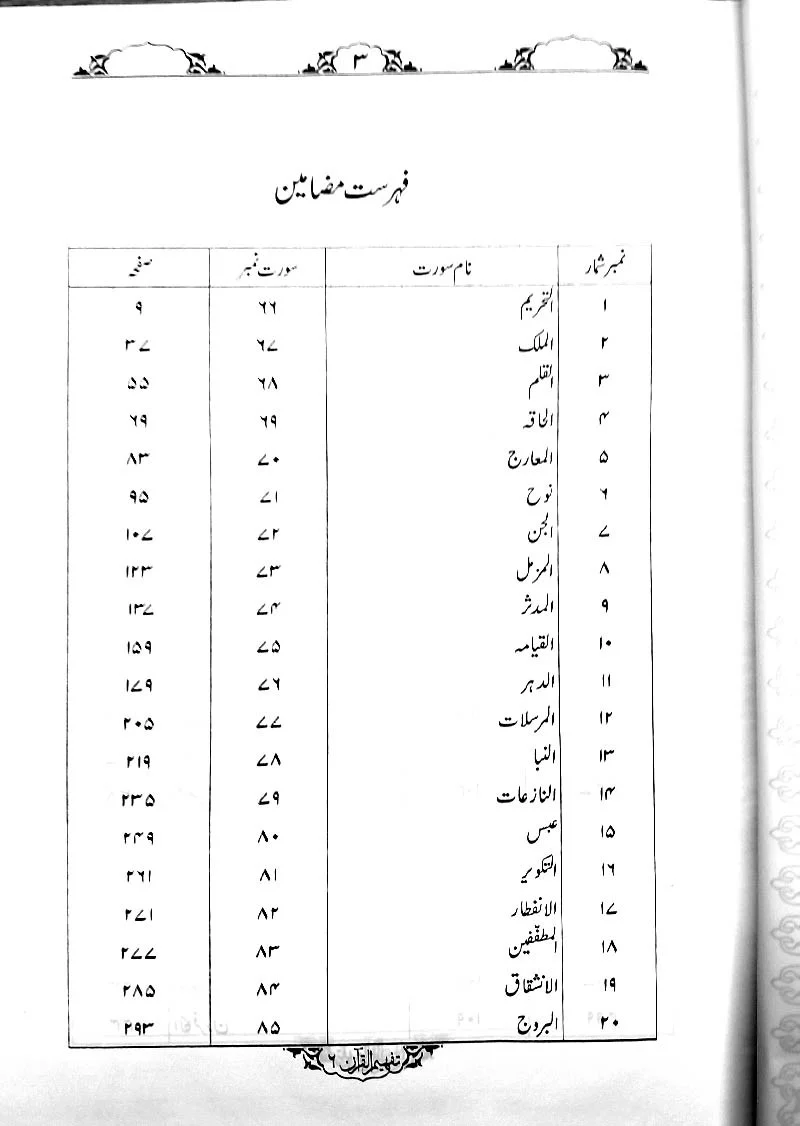 ۳
فہرست مضامین
نمبر شمار نام سورت سورت نمبر صفحہ
۱ التحریم ۶۶ ۹
۲ الملک ۶۷ ۳۷
۳ القلم ۶۸ ۵۵
۴ الحاقہ ۶۹ ۶۹
۵ المعارج ۷۰ ۸۳
۶ نوح ۷۱ ۹۵
۷ الجن ۷۲ ۱۰۷
۸ المزمل ۷۳ ۱۲۳
۹ المدثر ۷۴ ۱۳۷
۱۰ القیامہ ۷۵ ۱۵۹
۱۱ الدہر ۷۶ ۱۷۹
۱۲ المرسلات ۷۷ ۲۰۵
۱۳ النبا ۷۸ ۲۱۹
۱۴ النازعات ۷۹ ۲۳۵
۱۵ عبس ۸۰ ۲۴۹
۱۶ التکویر ۸۱ ۲۶۱
۱۷ الانفطار ۸۲ ۲۷۱
۱۸ المطفّفین ۸۳ ۲۷۷
۱۹ الانشقاق ۸۴ ۲۸۵
۲۰ البروج ۸۵ ۲۹۳
تفہیم القرآن ۶